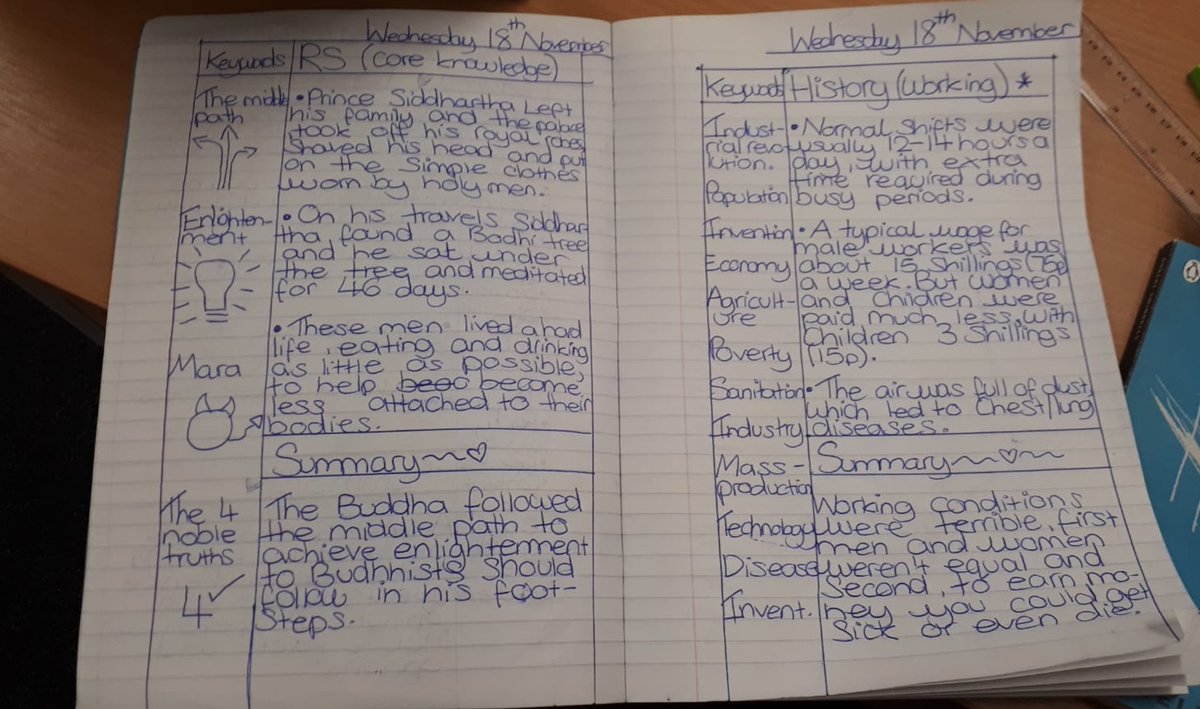 Wednesday 18th November
Keywords
RS (core knowledge)
The middle
path
Enlighten-
ment
Mara
The 4
noble
truths
4
• Prince Siddhartha Left
his family and the palace
took off his royal robes
Shaved his head and put
on the Simple clothes
worn by holy men.
• On his travels Siddhar
tha found a Bodhi tree
and he sat under
the tree and meditated
for 46 days.
• These men lived a had
life, eating and drinking
as little as possible,
to help beec become
less attached to their
bodies.
Summary
The Buddha followed
the middle path to
achieve enlightenment
to Budhhists Should
follow in his foot-
Steps.
Wednesday 18th November
Keywords
History (working) *
Indust-
rial revo
lution.
Population
Invention
Economy
Agricult-
ure
Poverty
Sanitation
Industry
Mass-
production
Technology
Disease
Invent.
• Normal shifts were
usually 12-14 hours a
day, with extra
time required during
busy periods.
• A typical wage for
male workers was
about 15 Shillings (75p)
a week. But women
and children were
paid much less, with
Children 3 Shillings
(15p).
• The air was full of dust,
which led to Chest/lung
diseases.
Summary
Working conditions
were terrible, first
men and women
weren't equal and
Second, to earn mo-
ney you could get
Sick or even die.